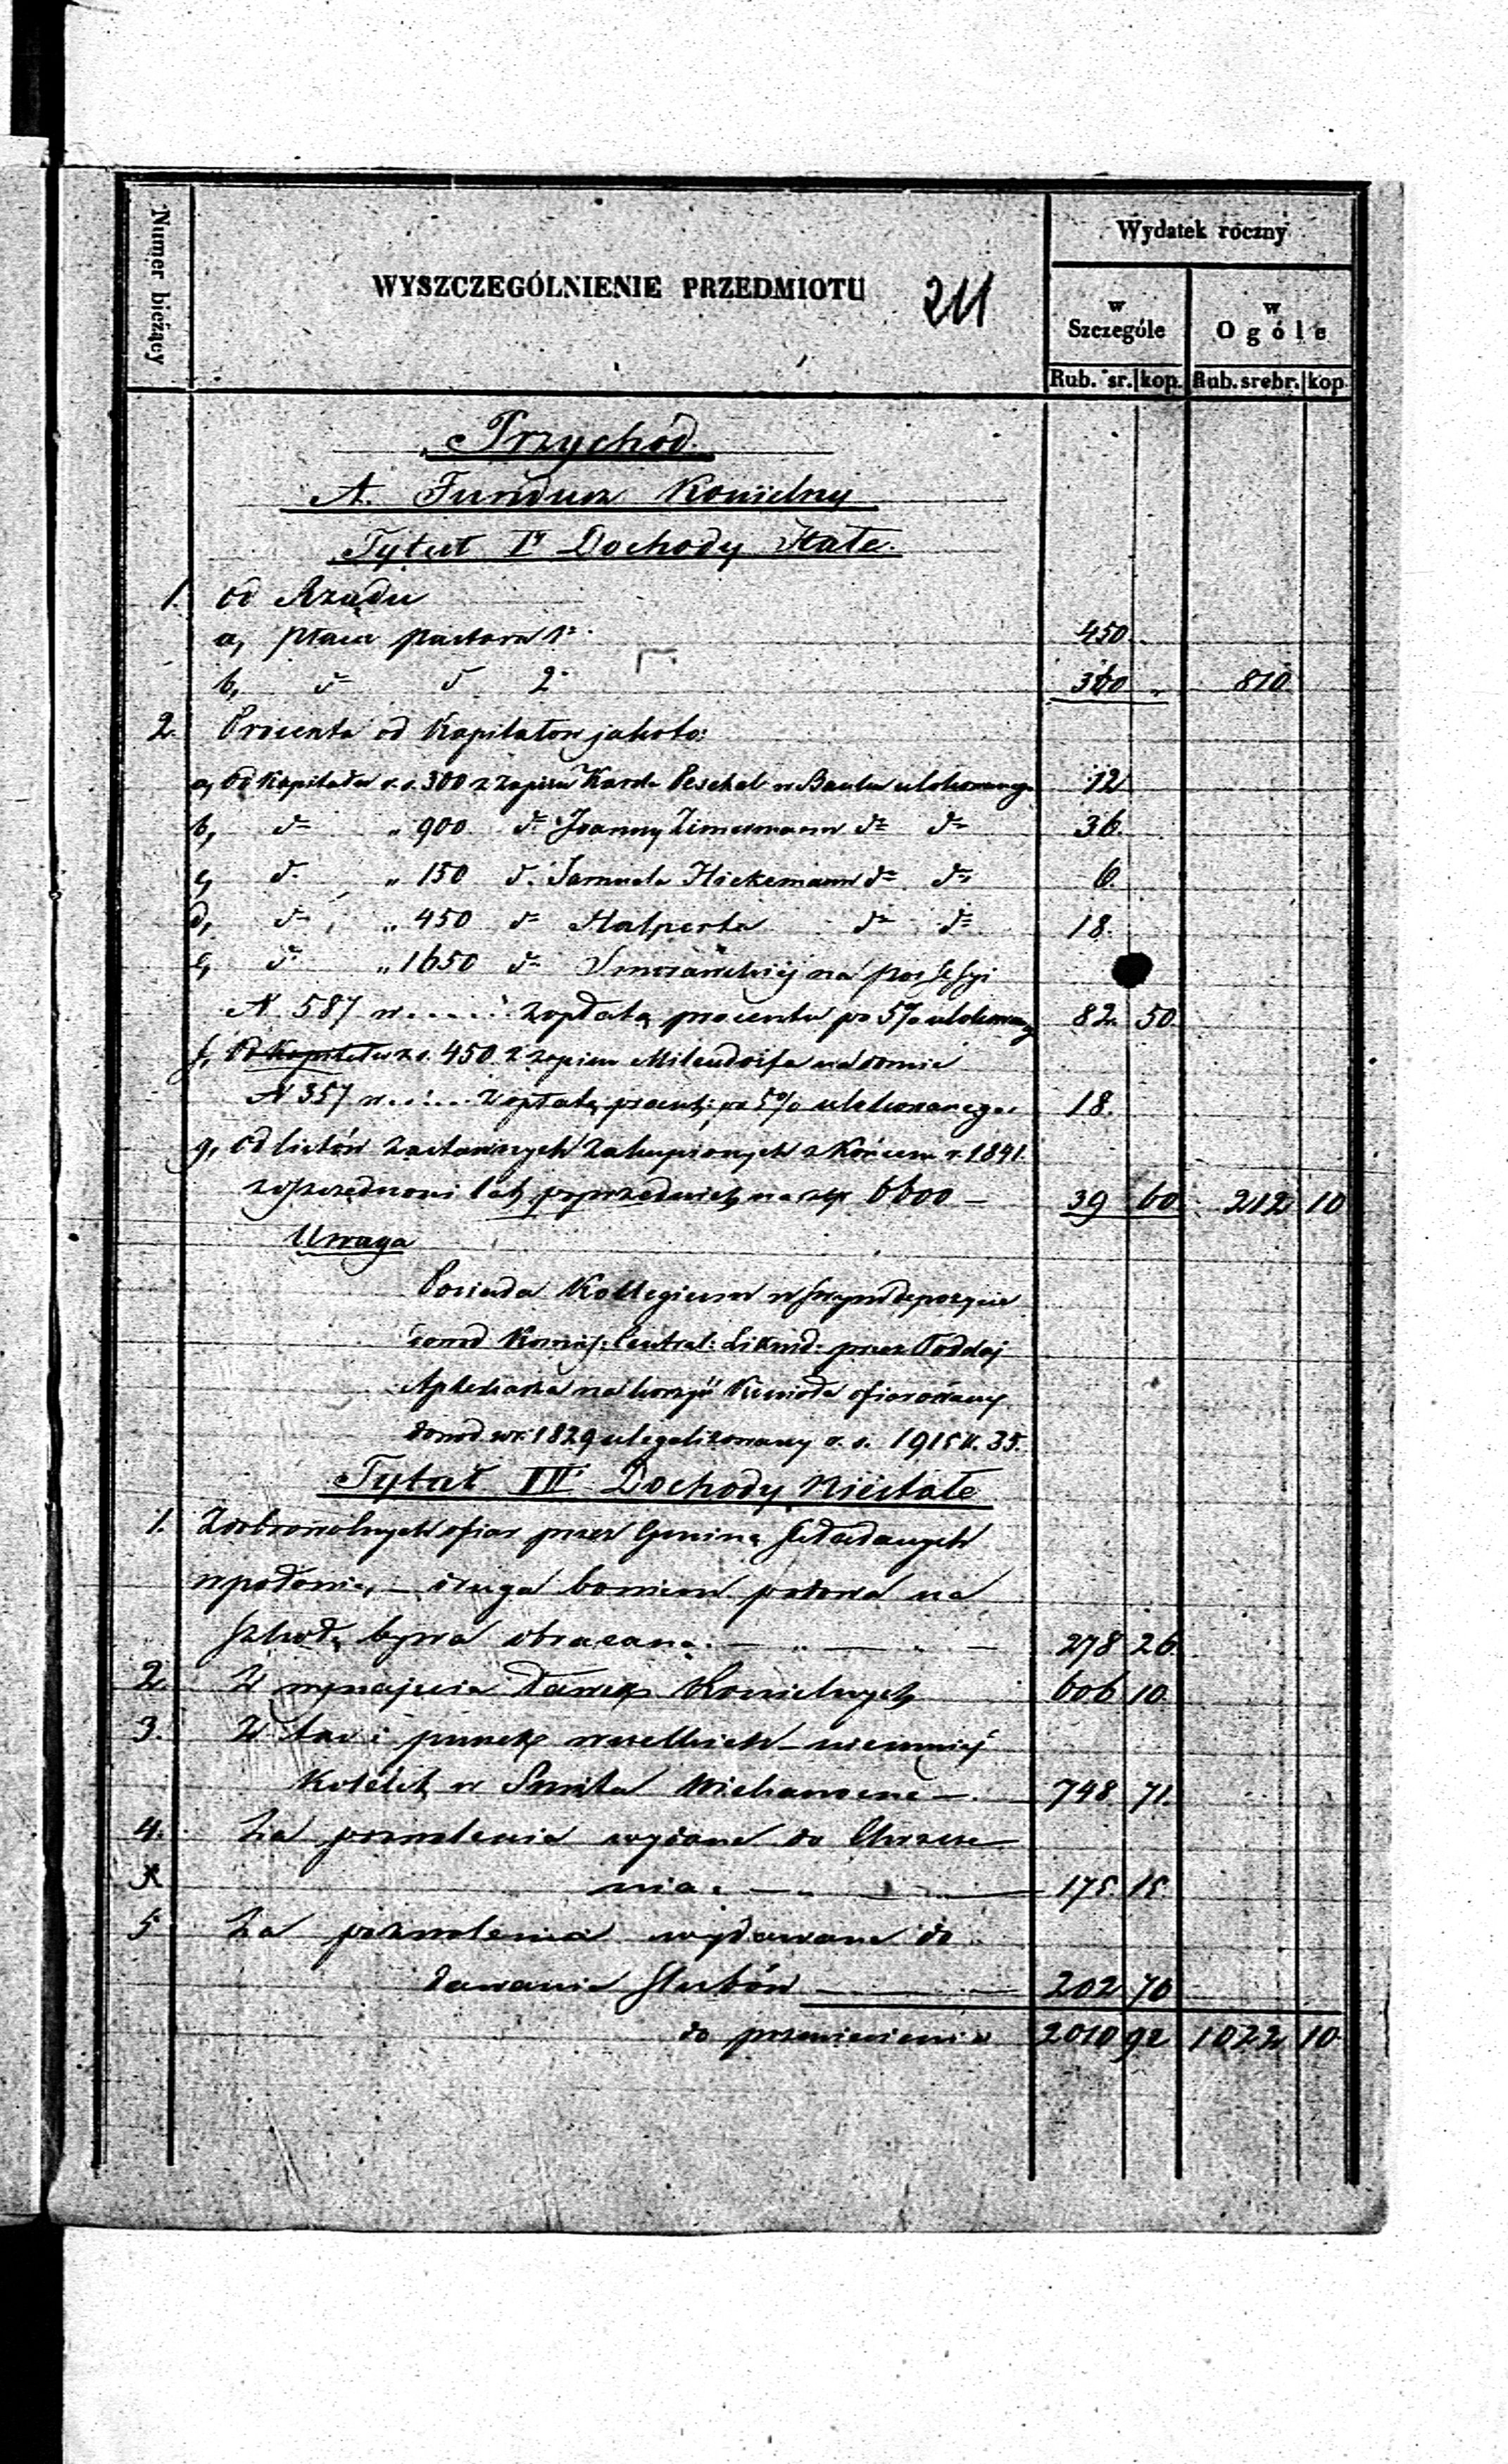 Numer bieżący
WYSZCZEGÓLNIENIE PRZEDMIOTU 211
Wydatek roczny
w Szczególe
w Ogóle
Rub. sr. kop. Rub. srebr. kop
Przychód
A. Fundusz Kościelny
Tytuł I Dochody Stałe.
1. od Rządu
a, płaca pastora 1 450
b, d 2 360 810
2. Procenta od Kapitałów jakoto:
a, Od Kapitału r.s. 300 z zapisu Karola Peschel w Banku ulokowanego 12
b, d " 900 d Joanny Zimermann d d 36.
c, d. " 150 d. Samuela Hickemann d d 6.
d, d " 450 d Halperta d d 18.
e, d " 1650 d na possessyi
N 587 w..... z opłatą procentu po 5% 82. 50
f, Od Kapitału r.s. 450 z zapisu Milendorfa na domie
N 357 w..... z opłatą procentu po 5% ulokowanego 18.
g, Od listów zastawnych zakupionych z końcem r. 1841.
z oszczędności lat poprzednich na złp 6600 — 39 60 212 10
Uwaga
Posiada Kollegium w swym depozycie
dowód Komis: Central: Likwid: przez
Aptekarza na korzyść ofiarowany
dowod w r. 1829 ulegalizowany r.s. 1915 k. 35.
Tytuł II Dochody Niestałe
1. Z dobrowolnych ofiar przez Gminę składanych
w połowie, — druga bowiem połowa na
szkołę bywa obracana. — " — 278 26.
2. Z wynajęcia ławek Kościelnych 606 10.
3. Z tac i puszek wszelkich — niemniej
Kolekt w Święta Wielkanocne —. 748 71.
4. Za pozwolenia wydane do Chrzcze
nia. — 175. 15.
5 Za pozwolenia wydawane do
dawania ślubów 202 70
do przeniesienia 2010 92 1022 10